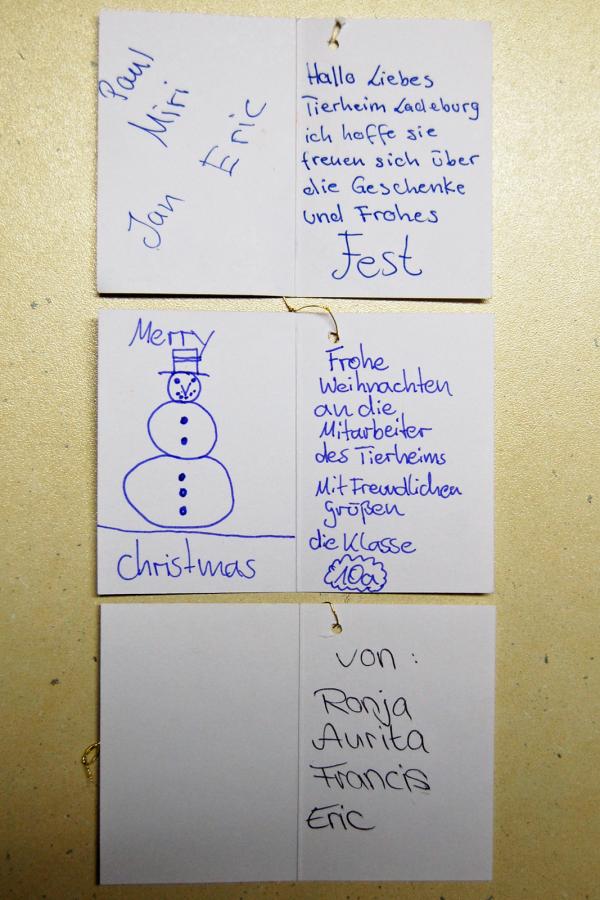 Paul
Miri
Eric
Jan
Hallo Liebes
Tierheim Ladeburg
ich hoffe sie
freuen sich über
die Geschenke
und Frohes
Fest
Merry
christmas
Frohe
Weihnachten
an die
Mitarbeiter
des Tierheims
Mit Freundlichen
grüßen
die Klasse
10a
von :
Ronja
Aurita
Francis
Eric